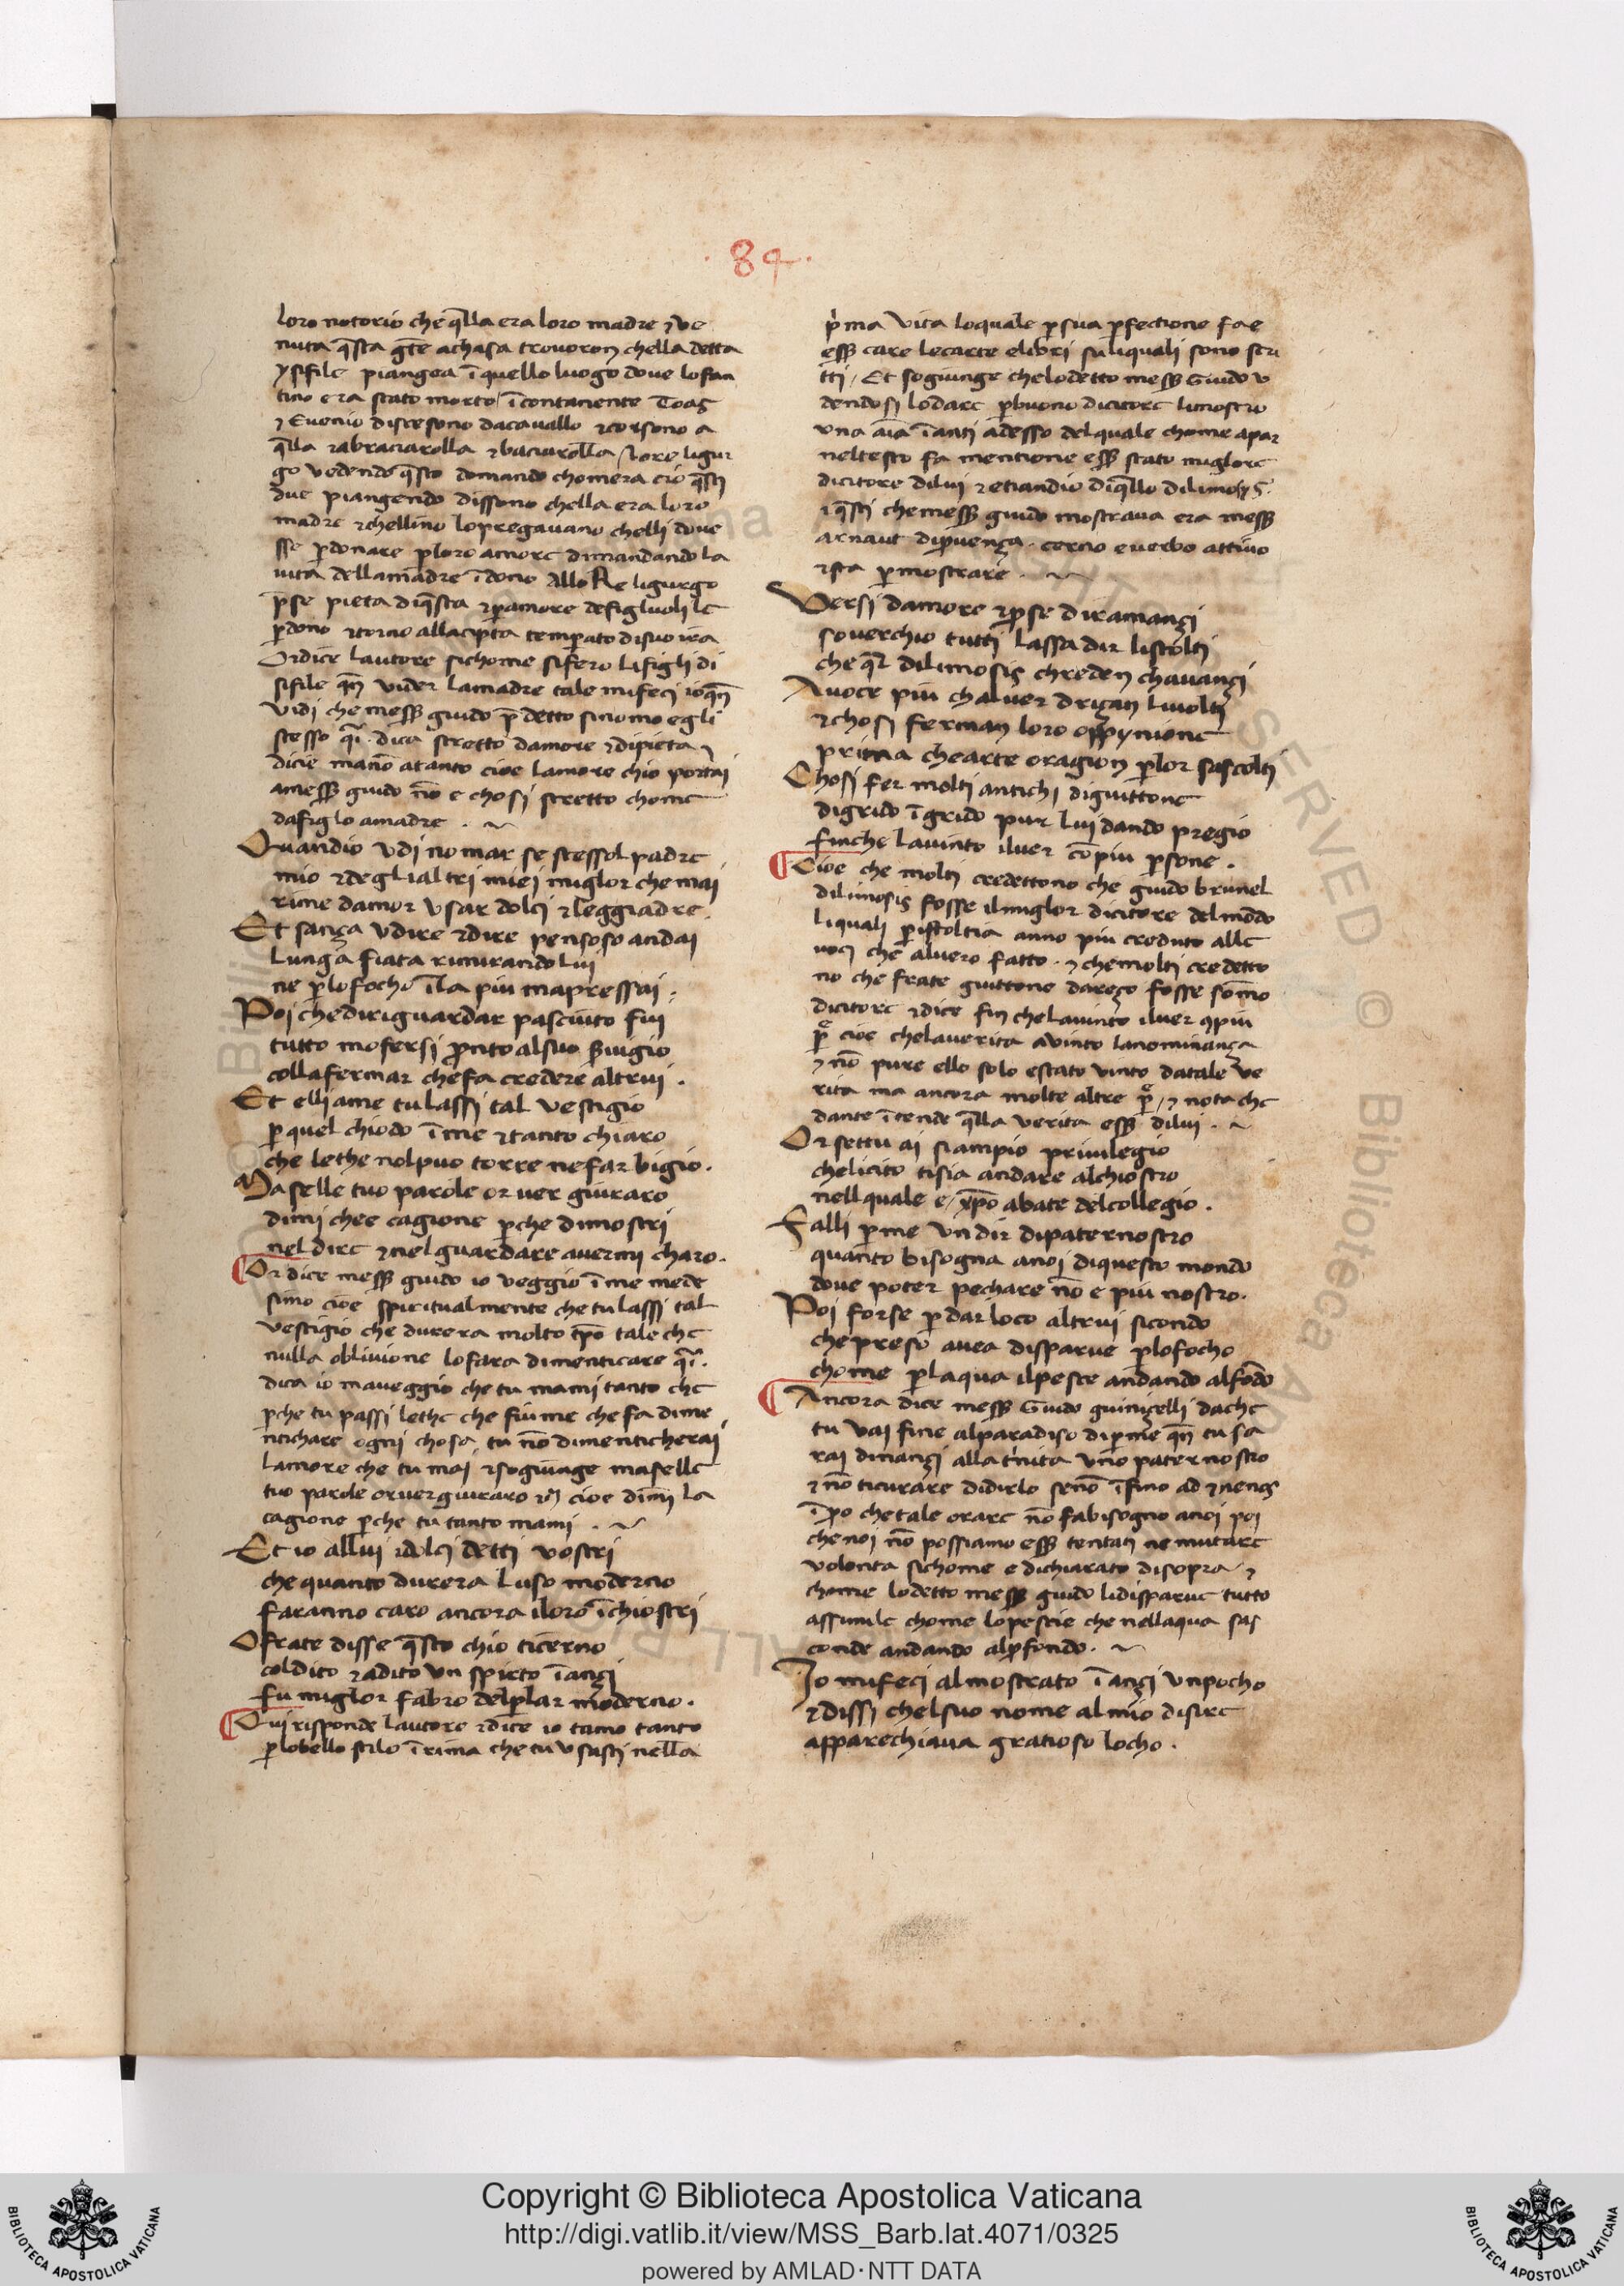 · 84 ·
loro notorio che q̄lla era loro madre ⁊ ve
nuta q̄sta gēte achasa trovoron chella detta
ysifile piangea ī quello luogo dove lo fan
tino era stato morto / īcontanente Toas
⁊ Evenio discesono dacavallo ⁊ corsono a
q̄lla ⁊ abraciarolla ⁊ baciarolla / lo re ligur
go vedendo q̄sto domando chomera cio q̄sti
due piangendo dissono chella era loro
madre ⁊ chellino lo pregavano chelli dove
sse p̱donare p̱ loro amore dimandando la
vita dellamadre ī dono Allo Re ligurgo
p̄se pieta diq̄sta ⁊ p̱amore defigluoli le
p̱dono ⁊ torno alla cipta temp̱ato disuo ira
Or dice lautore sichome si fero li figli di
sifile qn̄ vider lamadre tale mi feci io qn̄
vidi che mess̄ guido p̄detto si nomo egli
stesso q̄i dica stretto damore ⁊ dipieta ⁊
dicie ma nō atanto cioe lamore chio portai
amess̄ guido nō e chosi stretto chome
dafiglo amadre .
Quandio vdi nomar se stessol padre
mio ⁊ deglialtri miei miglor che mai
rime damor vsar dolci ⁊ leggiadre
Et sança vdire ⁊ dire pensoso andai
lunga fiata rimirando lui
ne p̱ lo focho ī la piu mapressai ;
Poi che diriguardar pasciuto fui
tutto mofersi p̱nto alsuo s̱vigio
colla fermar che fa credere altrui .
Et elli ame tu lassi tal vestigio
p̱ quel chiodo ī me ⁊ tanto chiaro
che lethe nol puo torre ne far bigio .
Ma selle tuo parole or ver giuraro
dimi chee cagione p̱che dimostri
nel dire ⁊ nel guardare avermi charo .
Or dice mess̄ guido io veggio ī me mede
simo cioe spiritualmente che tu lassi tal
vestigio che durera molto tp̄o tale che
nulla oblivione lo fara dimenticare q̄i .
dica io maveggio che tu mami tanto che
p̱che tu passi lethe che fiume che fa dime
ntichare ogni chosa , tu nō dimenticherai
lamore che tu mai ⁊ sogiunge ma selle
tuo parole or ver giuraro ⁊c̄ cioe dimi la
cagione p̱che tu tanto mami .
Et io allui i dolci detti vostri
che quanto durera luso moderno
faranno caro ancora i loro īchiostri
O frate disse q̄sto chio ticerno
col dito ⁊ adito vn spirto īançi
fu miglor fabro del p̱lar moderno .
Qui risponde lautore ⁊ dice io tamo tanto
p̱ lo bello stilo ī rima che tu vsasti nella
p̍ma vita loquale p̱ sua p̱fectione fae
ess̄ care lecarte elibri su liquali sono scri
tti / Et sogiunge che lo detto mess̄ Guido v
dendosi lodare p̱ buono dicitore limostro
vna aīa īanti adesso delquale chome apar
nel testo fa mentione ess̄ stato miglore
dicitore dilui ⁊ etiandio diq̄llo dilimoys .
⁊ q̄sti che mess̄ guido mostrava era mess̄
arnaut dip̱vença . cerno e verbo attivo
⁊ sta p̱ mostrare .
Versi damore ⁊ p̱se diramançi
soverchio tutti lassa dir li stolti
che q̄l dilimosis chreden chavançi
A voce piu chalver driçan li volti
⁊ chosi ferman loro oppynione
prima che arte o ragion p̱ lor sascolti
Chosi fer molti antichi diguittone
digrido ī grido pur lui dando pregio
finche lavinto il ver cō piu p̱sone .
Cioe che molti credettono che guido brunel
dilimosis fosse il miglor dicitore del mōdo
liquali p̱ istoltia anno piu creduto alle
voci che alvero fatto . ⁊ chemolti credetto
no che frate guittone dareço fosse sōmo
dicitore ⁊ dice fin che lavinto il ver 9 piu
p̱e cioe chelaverita avinto lanominança
⁊ nō pure ello solo estato vinto datale ve
rita ma ancora molte altre p̱e / ⁊ nota che
dante ītende q̄lla verita ess̄ dilui .
Or settu ai siampio privilegio
chelicito tisia andare alchiostro
nellquale e xp̄o abate delcollegio .
Falli p̱ me vn dir dipaternostro
quanto bisogna anoi diquesto mondo
dove poter pechare nō e piu nostro .
Poi forse p̱ dar loco altrui sicondo
che preso avea disparve p̱ lo focho
chome p̱ laqua il pesce andando alfōdo
Ancora dice mess̄ Guido guiniçelli dache
tu vai fine alparadiso di p̱ me qn̄ tu sa
rai dinançi alla t̍nita vno paternostro
⁊ nō ticurare didirlo senō īfino ad ⁊ nenos
īp̱o che tale orare nō fa bisogno anoi poi
che noi nō possiamo ess̄ tentati ne mutare
volonta sichome e dichiarato disopra ⁊
chome lodetto mess̄ guido lidisparve tutto
assimile chome lo pescie che nellaqua sas
conde andando alp̱fondo .
Io mi feci al mostrato īançi vnpocho
⁊ dissi chelsuo nome al mio disire
apparechiava gratioso locho .
Copyright © Biblioteca Apostolica Vaticana
http://digi.vatlib.it/view/MSS_Barb.lat.4071/0325
powered by AMLAD·NTT DATA
BIBLIOTECA APOSTOLICA VATICANA
BIBLIOTECA APOSTOLICA VATICANA